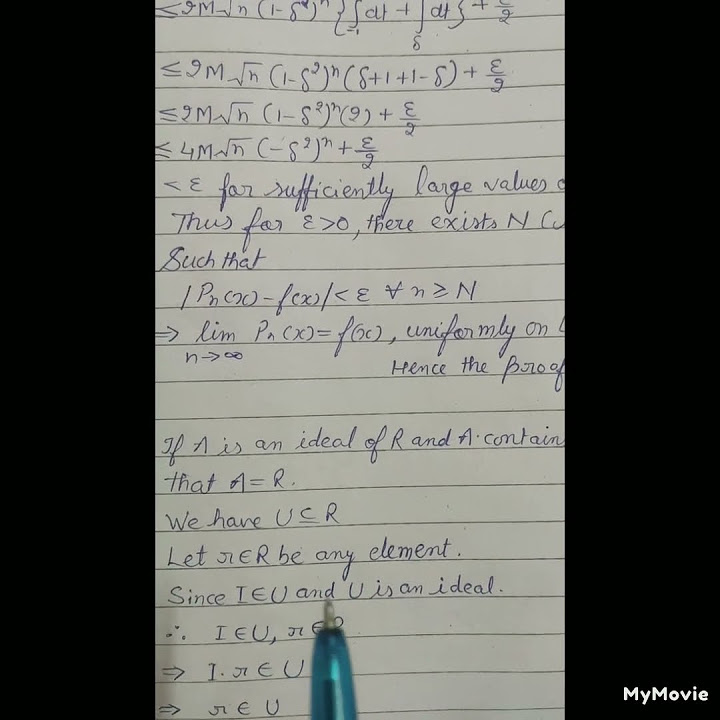 ≤2M√n (1-δ²)ⁿ {∫dt + ∫dt} + ε/2
≤2M√n (1-δ²)ⁿ (δ+1+1-δ) + ε/2
≤2M√n (1-δ²)ⁿ(2) + ε/2
≤ 4M√n (-δ²)ⁿ + ε/2
< ε for sufficiently large values
Thus for ε>0, there exists N
Such that
|Pn(x)-f(x)|< ε ∀ n ≥ N
⇒ lim Pn(x)=f(x), uniformly on
n→∞
Hence the Proof
If A is an ideal of R and A contain
that A = R.
We have U ⊆ R
Let r∈R be any element.
Since I∈U and U is an ideal.
∴ I ∈U, r ∈
⇒ I.r ∈ U
⇒ r ∈ U
MyMovie